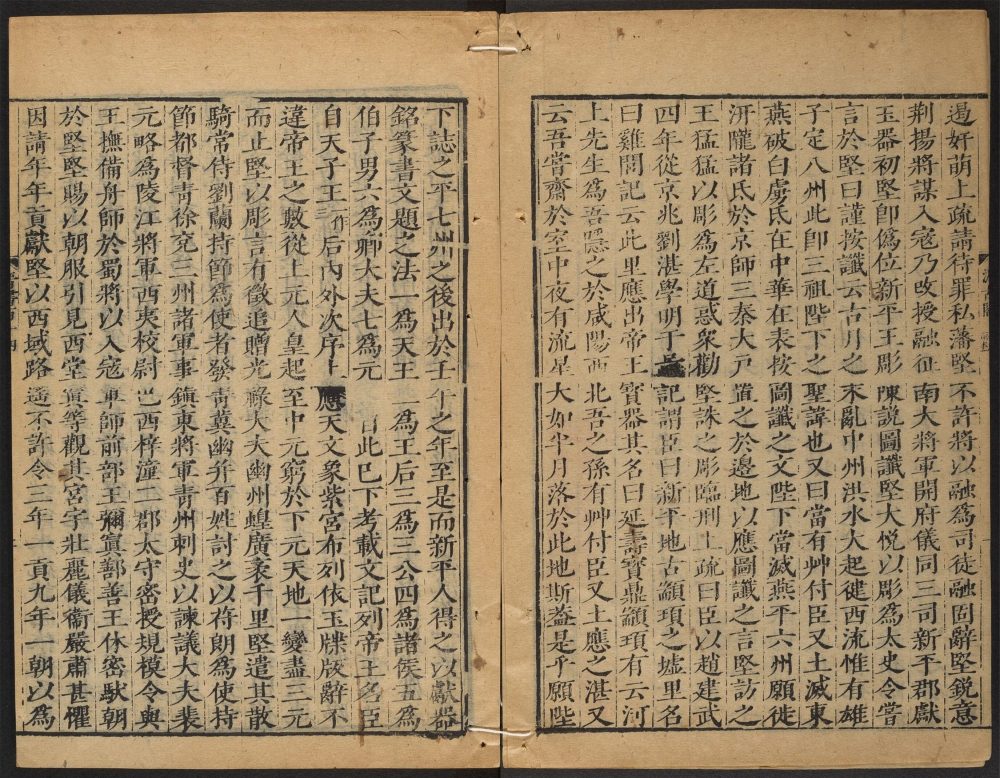 遏奸萌上疏請待罪私藩堅不許將以融爲司徒融固辭堅銳意
荆揚將謀入寇乃改授融征南大將軍開府儀同三司新平郡獻
玉器初堅卽僞位新平王彫陳說圖讖堅大悅以彫爲太史令嘗
言於堅曰謹按讖云古月之末亂中州洪水大起健西流惟有雄
子定八州此卽三祖陛下之聖諱也又曰當有艸付臣又土滅東
燕破白虜氏在中華在表按圖讖之文陛下當滅燕平六州願徙
汧隴諸氐於京師三秦大戸置之於邊地以應圖讖之言堅訪之
王猛猛以彫爲左道惑衆勸堅誅之彫臨刑上疏曰臣以趙建武
四年從京兆劉湛學明于記謂臣曰新平地古顓頊之墟里名
曰雞閭記云此里應出帝王寶器其名曰延壽寶鼎顓頊有云河
上先生爲吾隱之於咸陽西北吾之孫有艸付臣又土應之湛又
云吾嘗齋於室中夜有流星大如半月落於此地斯蓋是乎願陛
下誌之平七州之後出於壬午之年至是而新平人得之以獻器
銘篆書文題之法一爲天王二爲王后三爲三公四爲諸侯五爲
伯子男六爲卿大夫七爲元自此已下考載文記列帝王名臣
自天子王一作后內外次序上應天文象紫宮布列依玉牒版辭不
違帝王之數從上元人皇起至中元窮於下元天地一變盡三元
而止堅以彫言有徵追贈光祿大夫幽州蝗廣袤千里堅遣其散
騎常侍劉蘭持節爲使者發青冀幽并百姓討之以苻朗爲使持
節都督靑徐兗三州諸軍事鎮東將軍靑州刺史以諫議大夫裴
元略爲陵江將軍西夷校尉巴西梓潼二郡太守密授規模令與
王撫備舟師於蜀將以入寇車師前部王彌窴鄯善王休密馱朝
於堅堅賜以朝服引見西堂窴等觀其宮宇壯麗儀衞嚴肅甚懼
因請年年貢獻堅以西域路遙不許令三年一貢九年一朝以爲